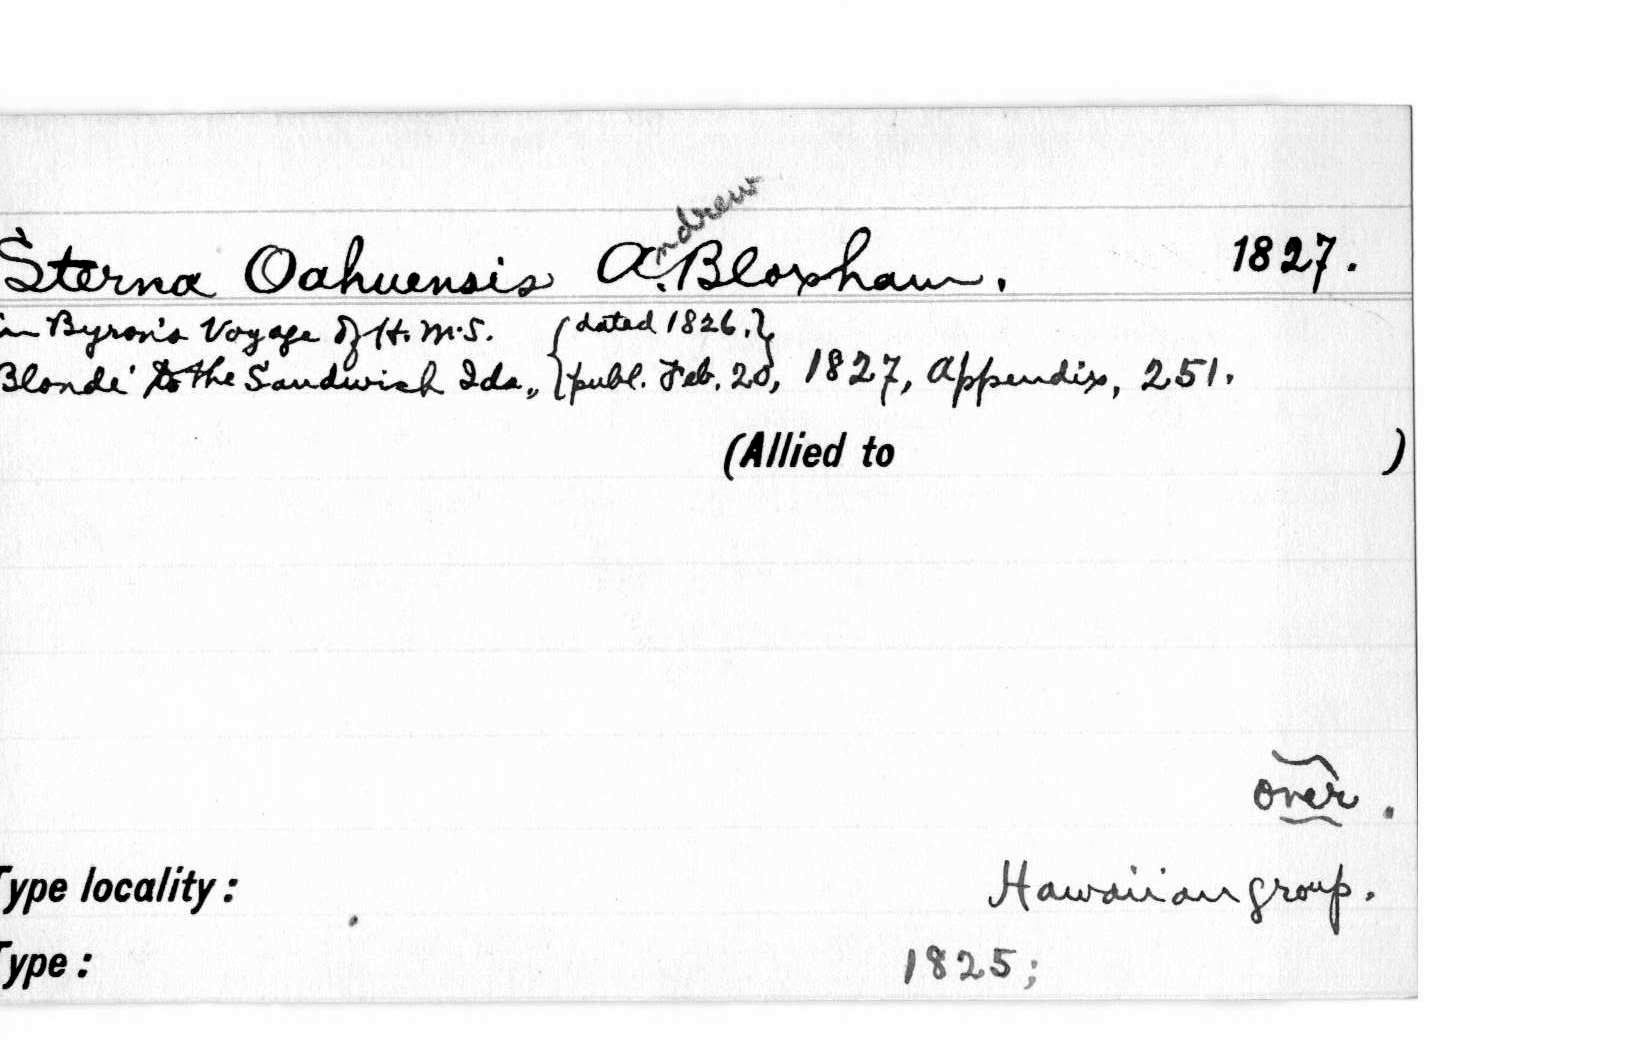 Sterna Oahuensis Andrew Bloxham. 1827.
in Byron's Voyage of H.M.S. {dated 1826.}
Blonde' to the Sandwich Ids., {publ. Feb. 20, 1827, Appendix, 251.
(Allied to )
over.
Type locality: Hawaiian group.
Type: 1825;